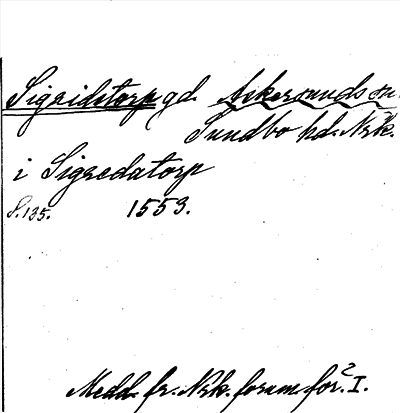 Sigridstorp gd. Askersunds sn.
Sundbo hd. Nrk.
i Sigredatorp
S. 135. 1553.
Medd. fr. Nrk. fornm.för. I.